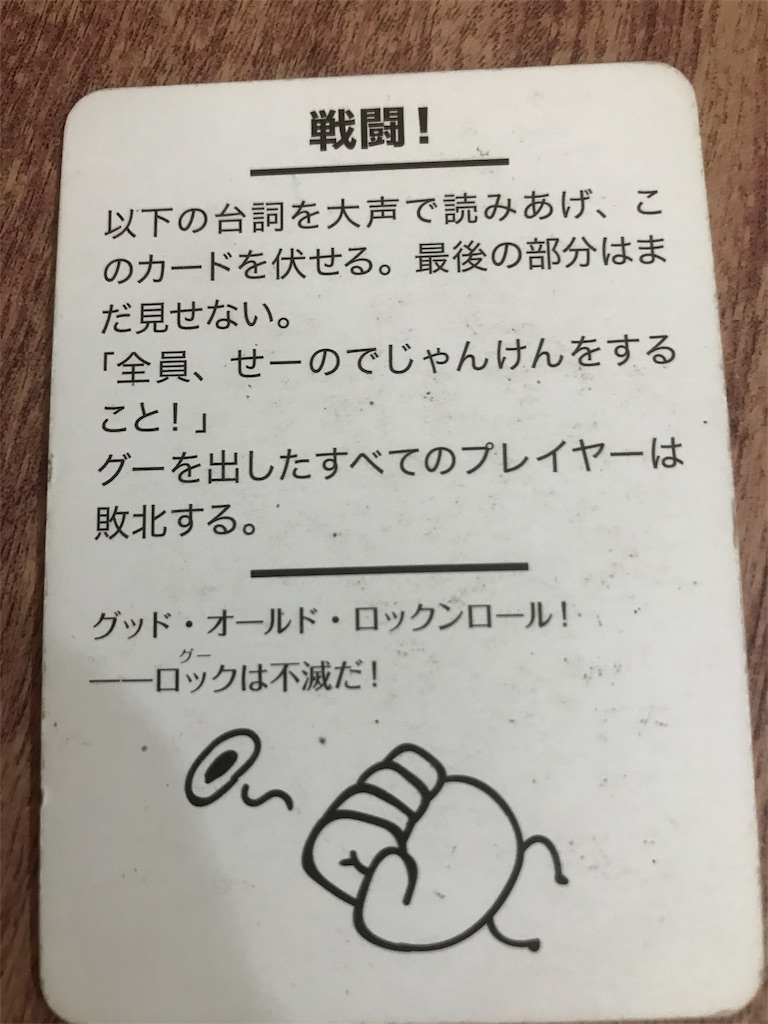 戦闘！
以下の台詞を大声で読みあげ、こ
のカードを伏せる。最後の部分はま
だ見せない。
「全員、せーのでじゃんけんをする
こと！」
グーを出したすべてのプレイヤーは
敗北する。
グッド・オールド・ロックンロール！
グー
――ロックは不滅だ！